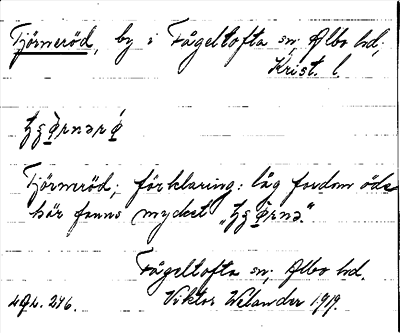 Tjörneröd, by i Fågeltofta sn, Albo hd,
Krist. l.
Tjörneröd; förklaring: låg fordom öde
här fanns mycket
Fågeltofta sn, Albo hd.
Viktor Welander 1919.